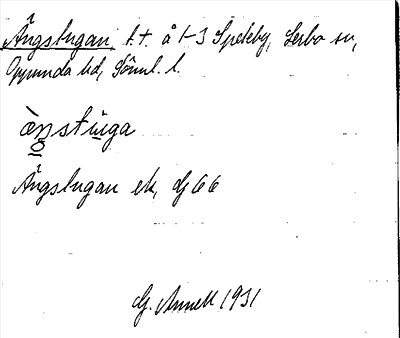 Ängstugan, l.t. å 1-3 Speteby, Lerbo sn,
Oppunda hd, Söml. l.
ænstuga
Ängstugan ek, dJ 66
G. Annell 1931